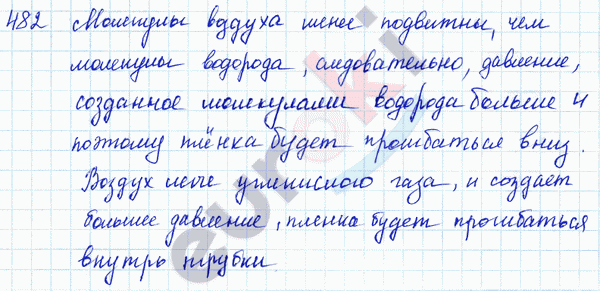 482 Молекулы воздуха менее подвижны, чем
молекулы водорода, следовательно, давление,
созданное молекулами водорода больше и
поэтому плёнка будет прогибаться вниз.
Воздух легче углекислого газа, и создает
большее давление, пленка будет прогибаться
внутрь трубки.
euroki